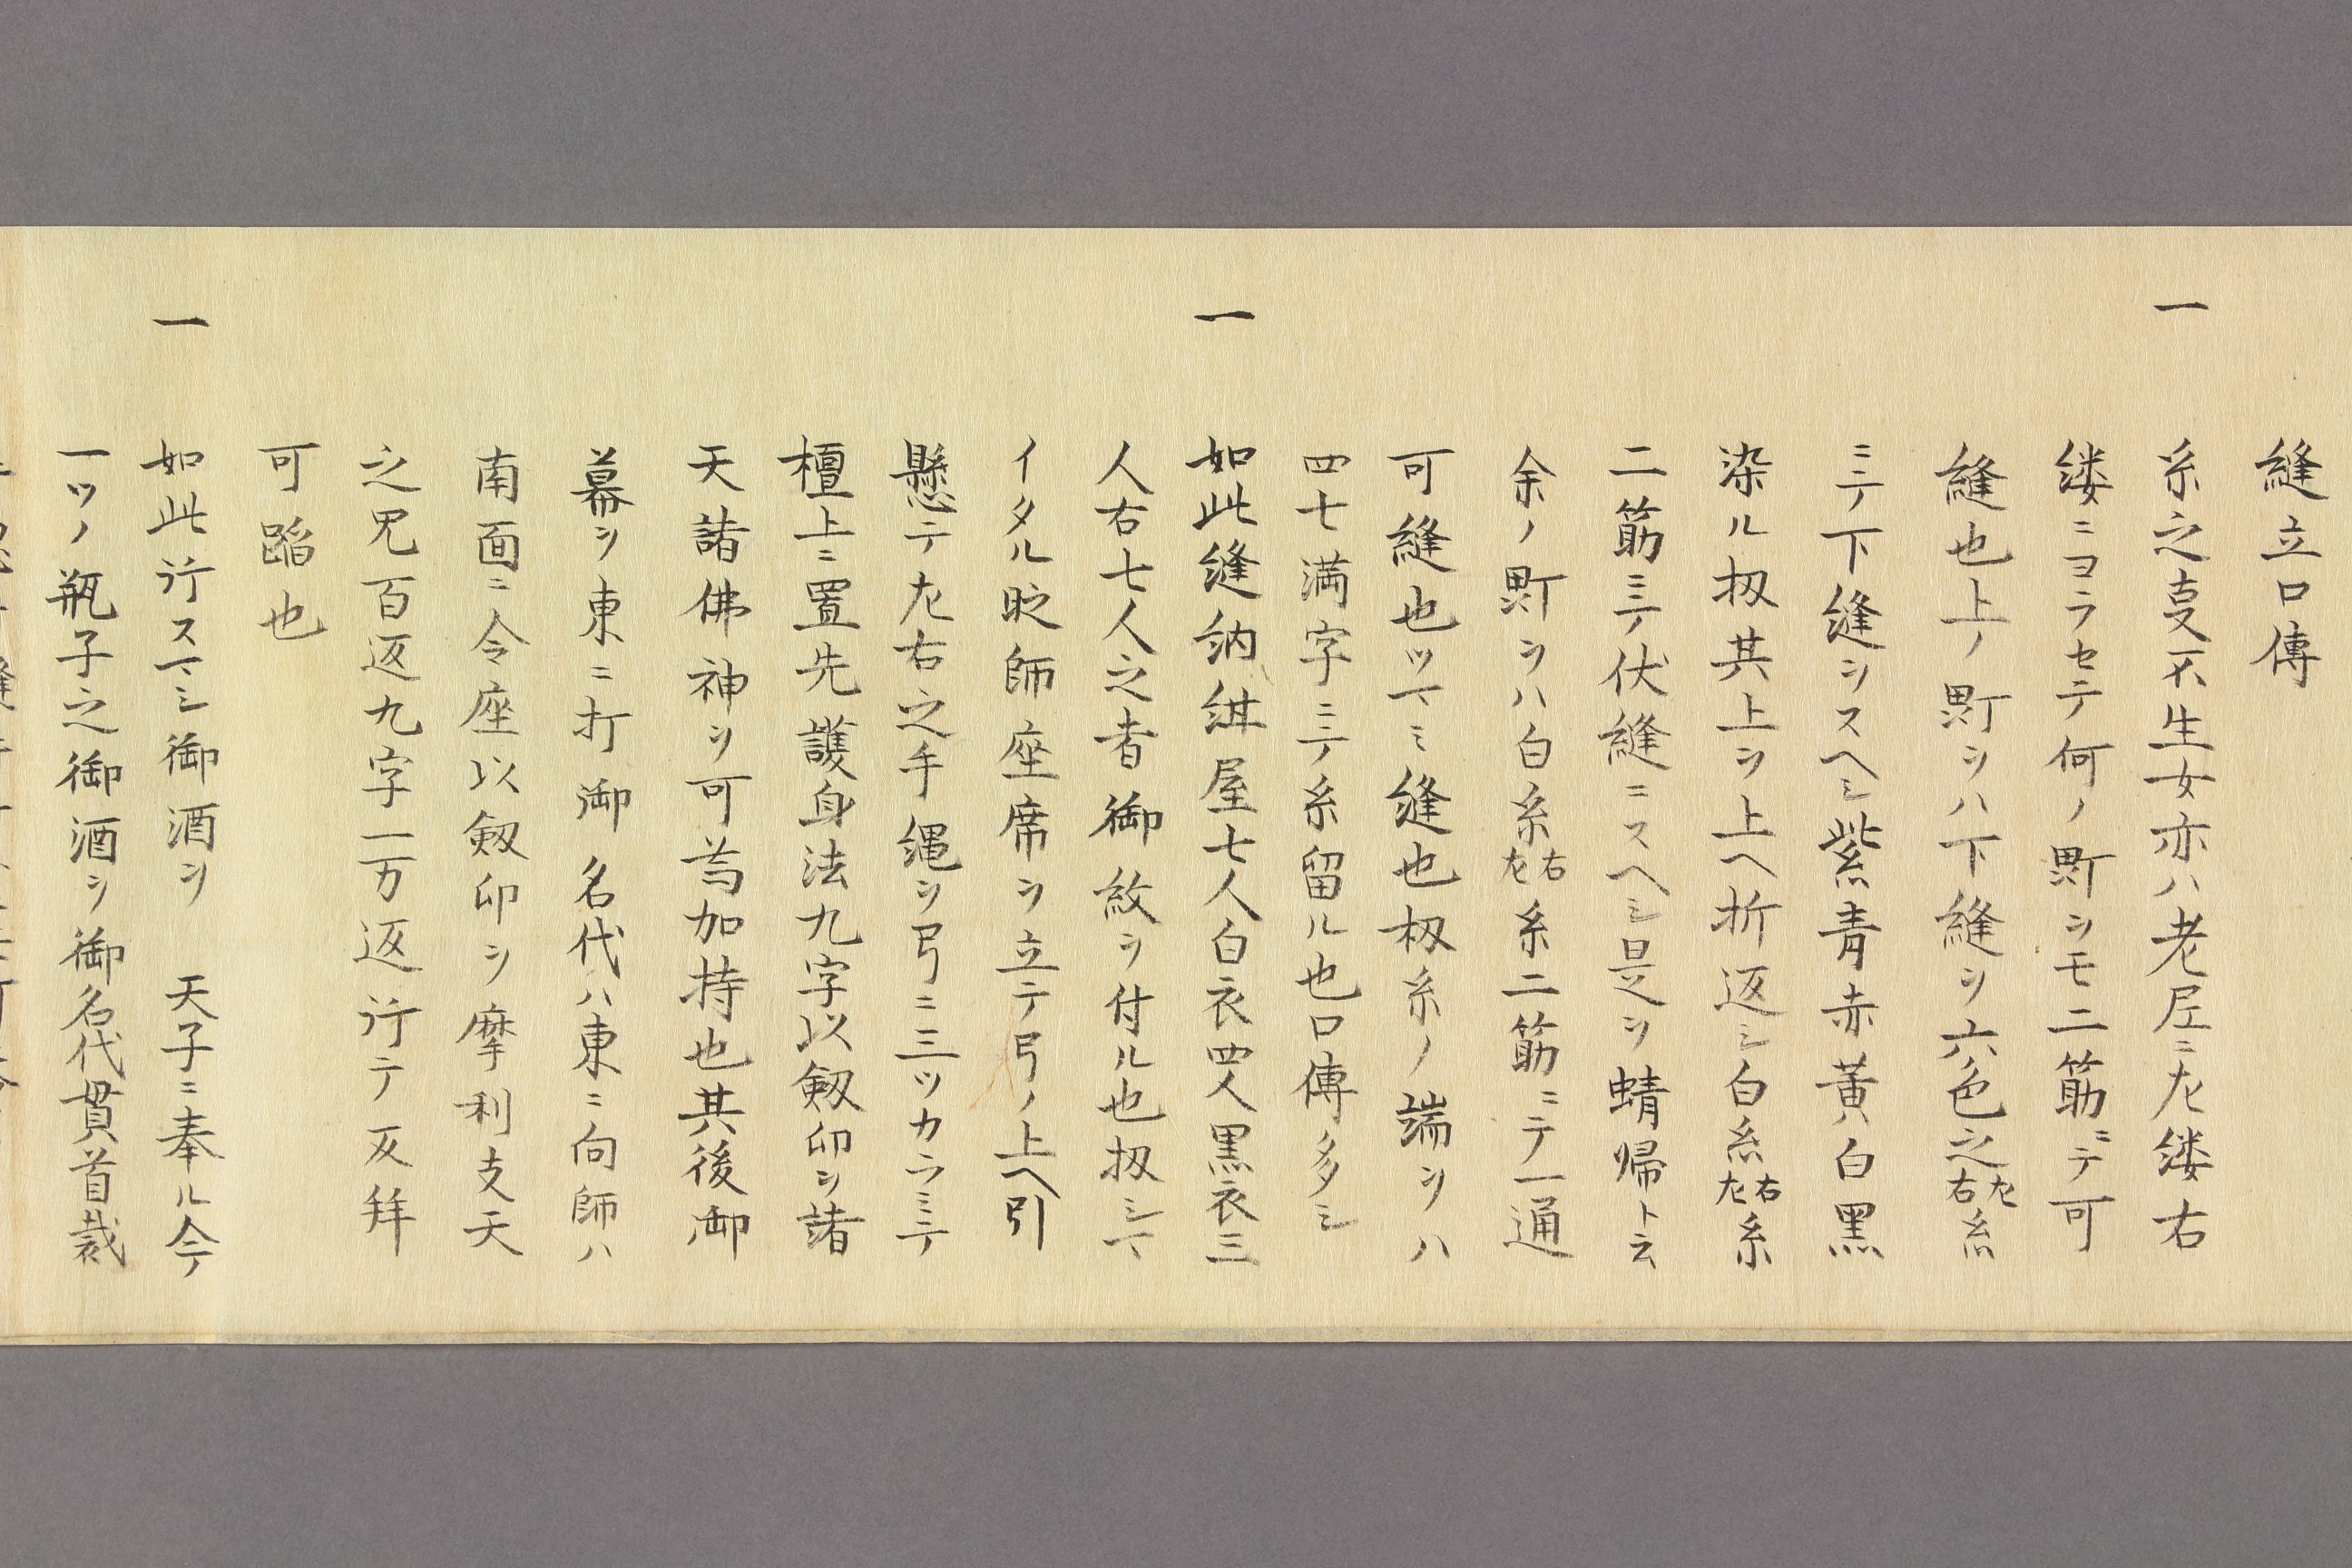 縫立口傳
一 糸之支不生女亦ハ老尼ニ左縷右
縷ニヨラセテ何ノ町ヲモ二筋ニテ可
縫也上ノ町ヲハ下縫ヲ六色之左右糸
ニテ下縫ヲスヘシ紫青赤黄白黒
染ル扨其上ヲ上ヘ折返シ白糸右左糸
二筋ニテ伏縫ニスヘシ是ヲ蜻帰ト云
余ノ町ヲハ白糸右左糸二筋ニテ一通
可縫也ツマミ縫也扨糸ノ端ヲハ
四七満字ニテ糸留ル也口傳多シ
一 如此縫納紺屋七人白衣四人黒衣三
人右七人之者御紋ヲ付ル也扨シマ
イタル時師座席ヲ立テ弓ノ上ヘ引
懸テ左右之手縄ヲ弓ニ三ツカラミテ
檀上ニ置先護身法九字以剱印ヲ諸
天諸佛神ヲ可為加持也其後御
幕ヲ東ニ打御名代ハ東ニ向師ハ
南面ニ令座以剱印ヲ摩利支天
之咒百返九字一万返行テ反拝
可蹈也
一 如此行スマシ御酒ヲ 天子ニ奉ル今
一ツノ瓶子之御酒ヲ御名代貫首裁